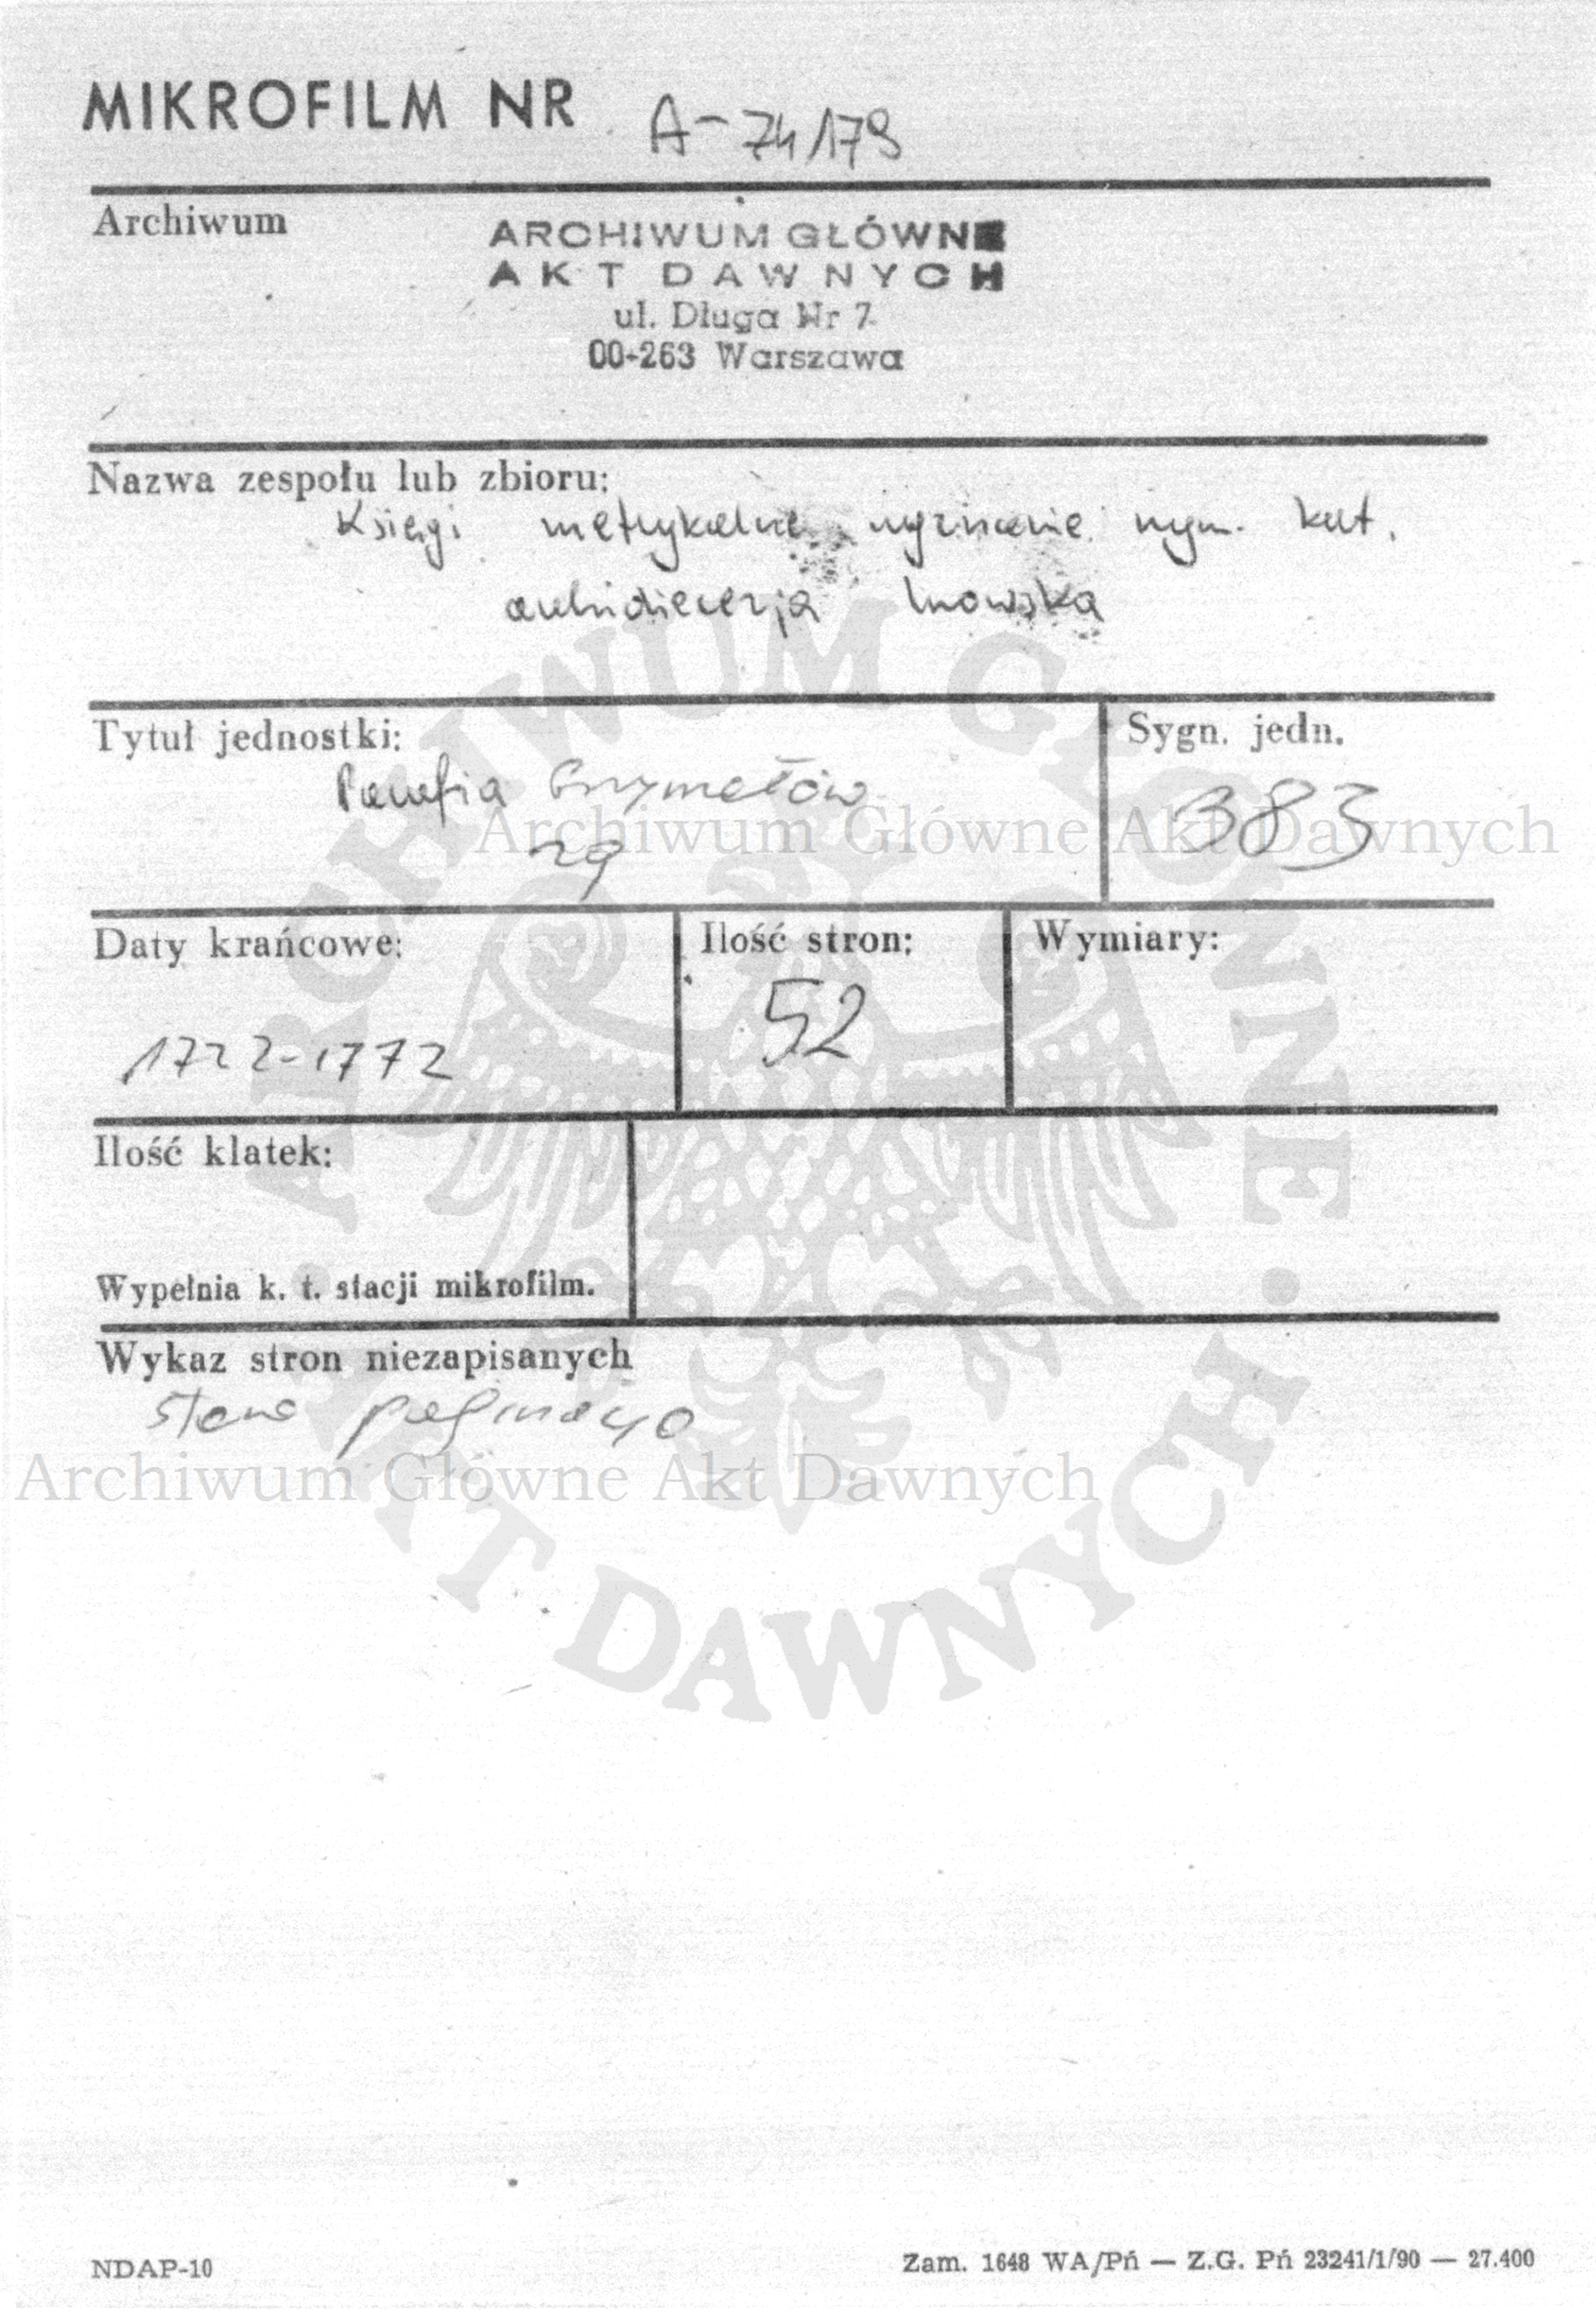 MIKROFILM NR A-74179
Archiwum
ARCHIWUM GŁÓWNE
AKT DAWNYCH
ul. Długa Nr 7
00-263 Warszawa
Nazwa zespołu lub zbioru:
Księgi metrykalne wyznanie rzym. kat.
archidiecezja lwowska
Tytuł jednostki:
Sygn. jedn.
Parafia Grzymałów
383
Archiwum Główne Akt Dawnych
Daty krańcowe:
Ilość stron:
Wymiary:
1722-1772
52
Ilość klatek:
Wypełnia k. t. stacji mikrofilm.
Wykaz stron niezapisanych
stara paginacja
Archiwum Główne Akt Dawnych
ARCHIWUM GŁÓWNE · AKT DAWNYCH ·
NDAP-10
Zam. 1648 WA/Pń — Z.G. Pń 23241/1/90 — 27.400